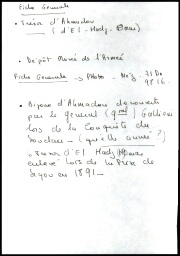 Fiche Generale
• Trésor d'Ahmadou
(d'El-Hadj Omar)
• Dépôt Musée de l'Armée
Fiche Generale → Photo - Nég. 75 Do
9816.
• Bijoux d'Ahmadou découverts
par le general (gral) Gallieni
lors de la Conquête du
Soudan - (quelle année?)
Tresor d'El Hadj Omar
enlevé lors de la Prise de
Segou en 1891 -